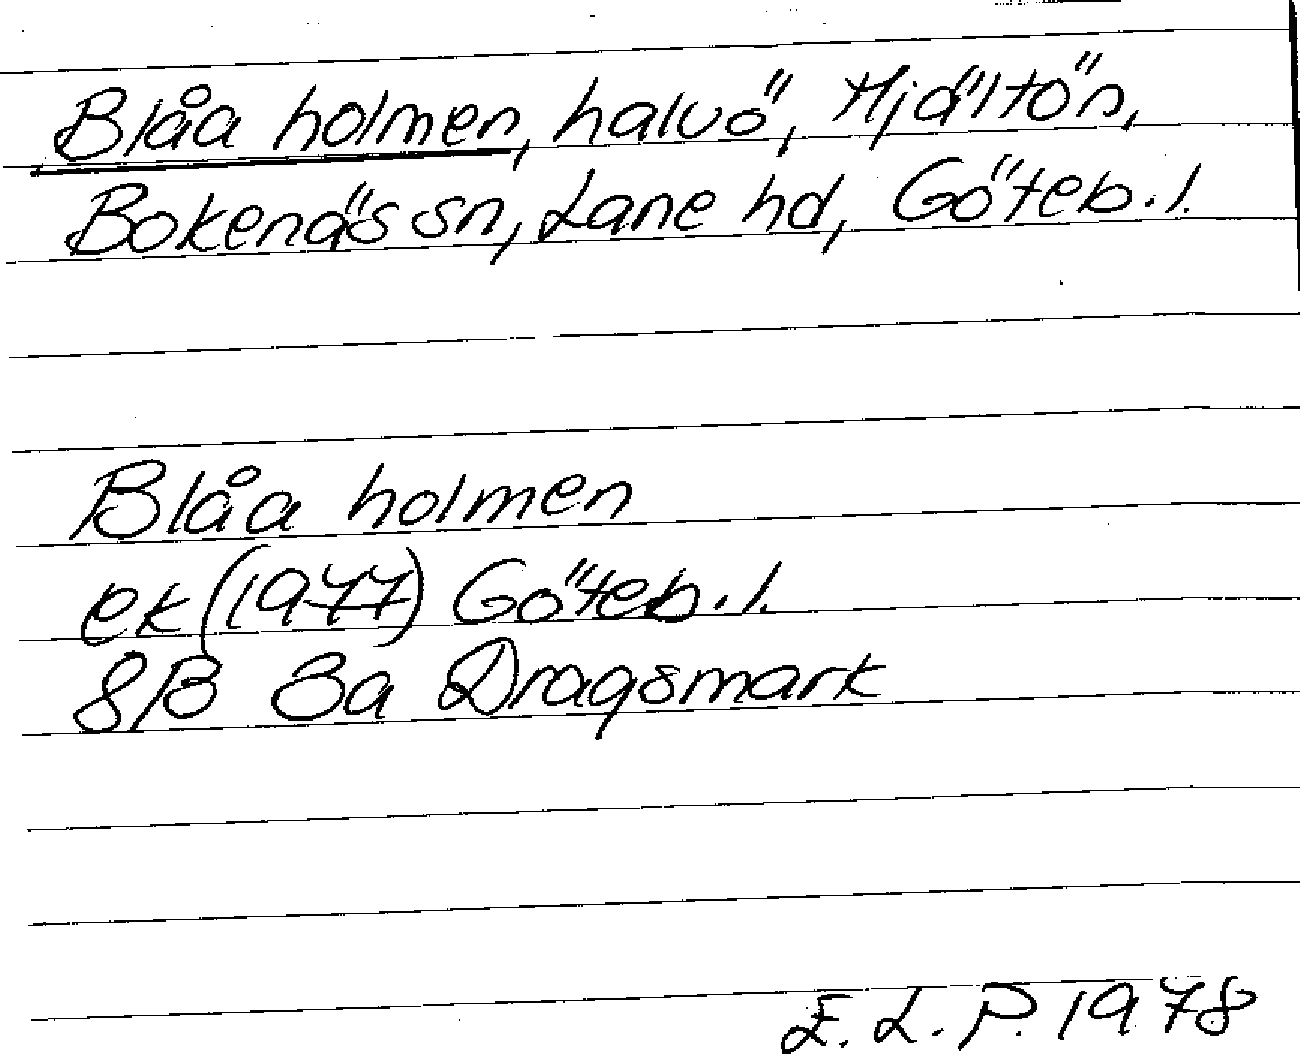 Blåa holmen, halvö, Hjältön,
Bokenäs sn, Lane hd, Göteb.l.
Blåa holmen
ek (1977) Göteb.l.
8B 3a Dragsmark
E.L.P. 1978